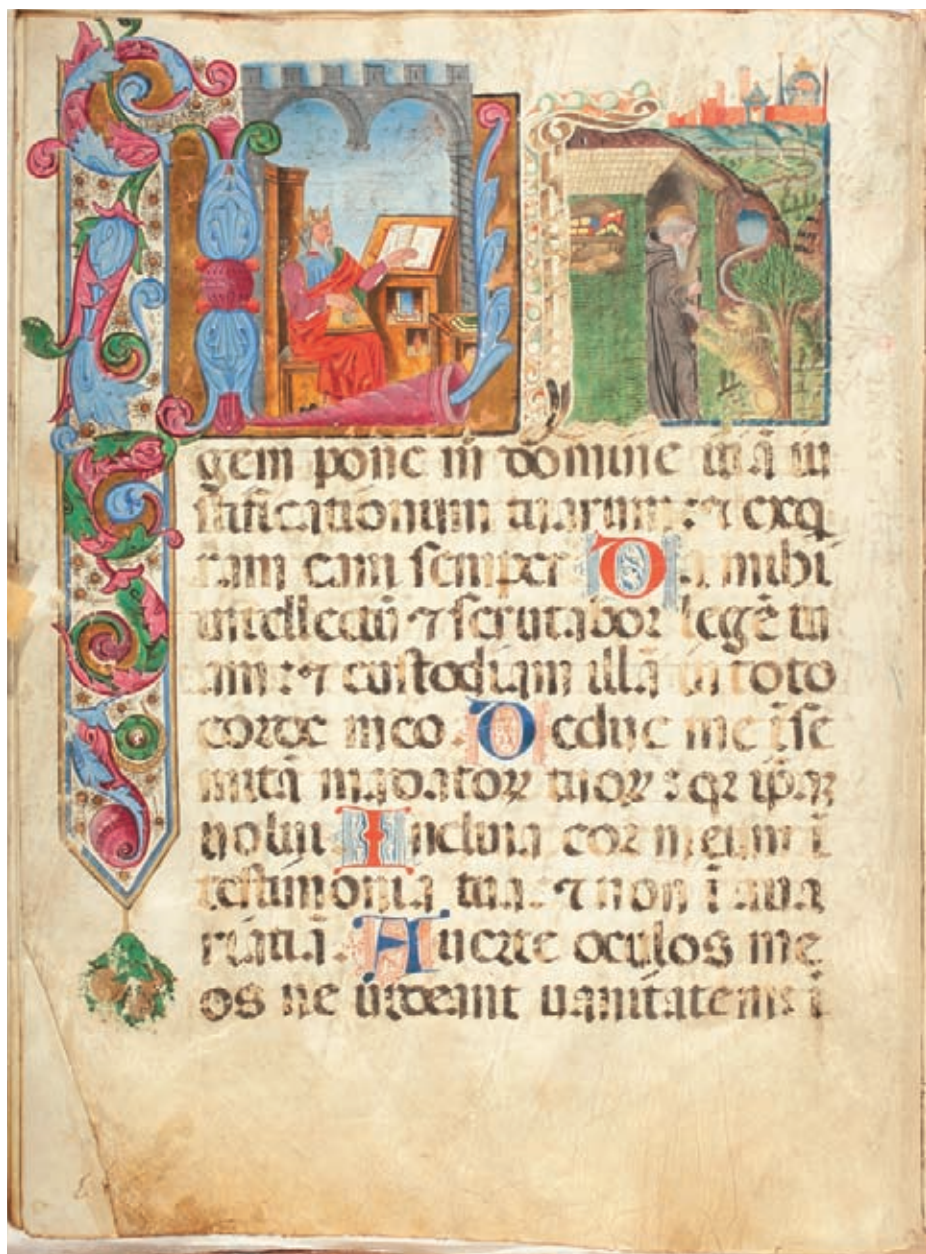 LEgem pone m̄ domine uiā iu
stificationum tuarum: ⁊ exq̄
ram eam semper Da mihi
intellectū ⁊ scrutabor legē tu
am: ⁊ custodiam illā in toto
corde meo. Deduc me ī se
mitā mādatoꝝ tuoꝝ: qꝛ ip̄aꝫ
uolui Inclina cor meum ī
testimonia tua: ⁊ non ī aua
ritiā. Auerte oculos me
os ne uideant uanitatem: ī